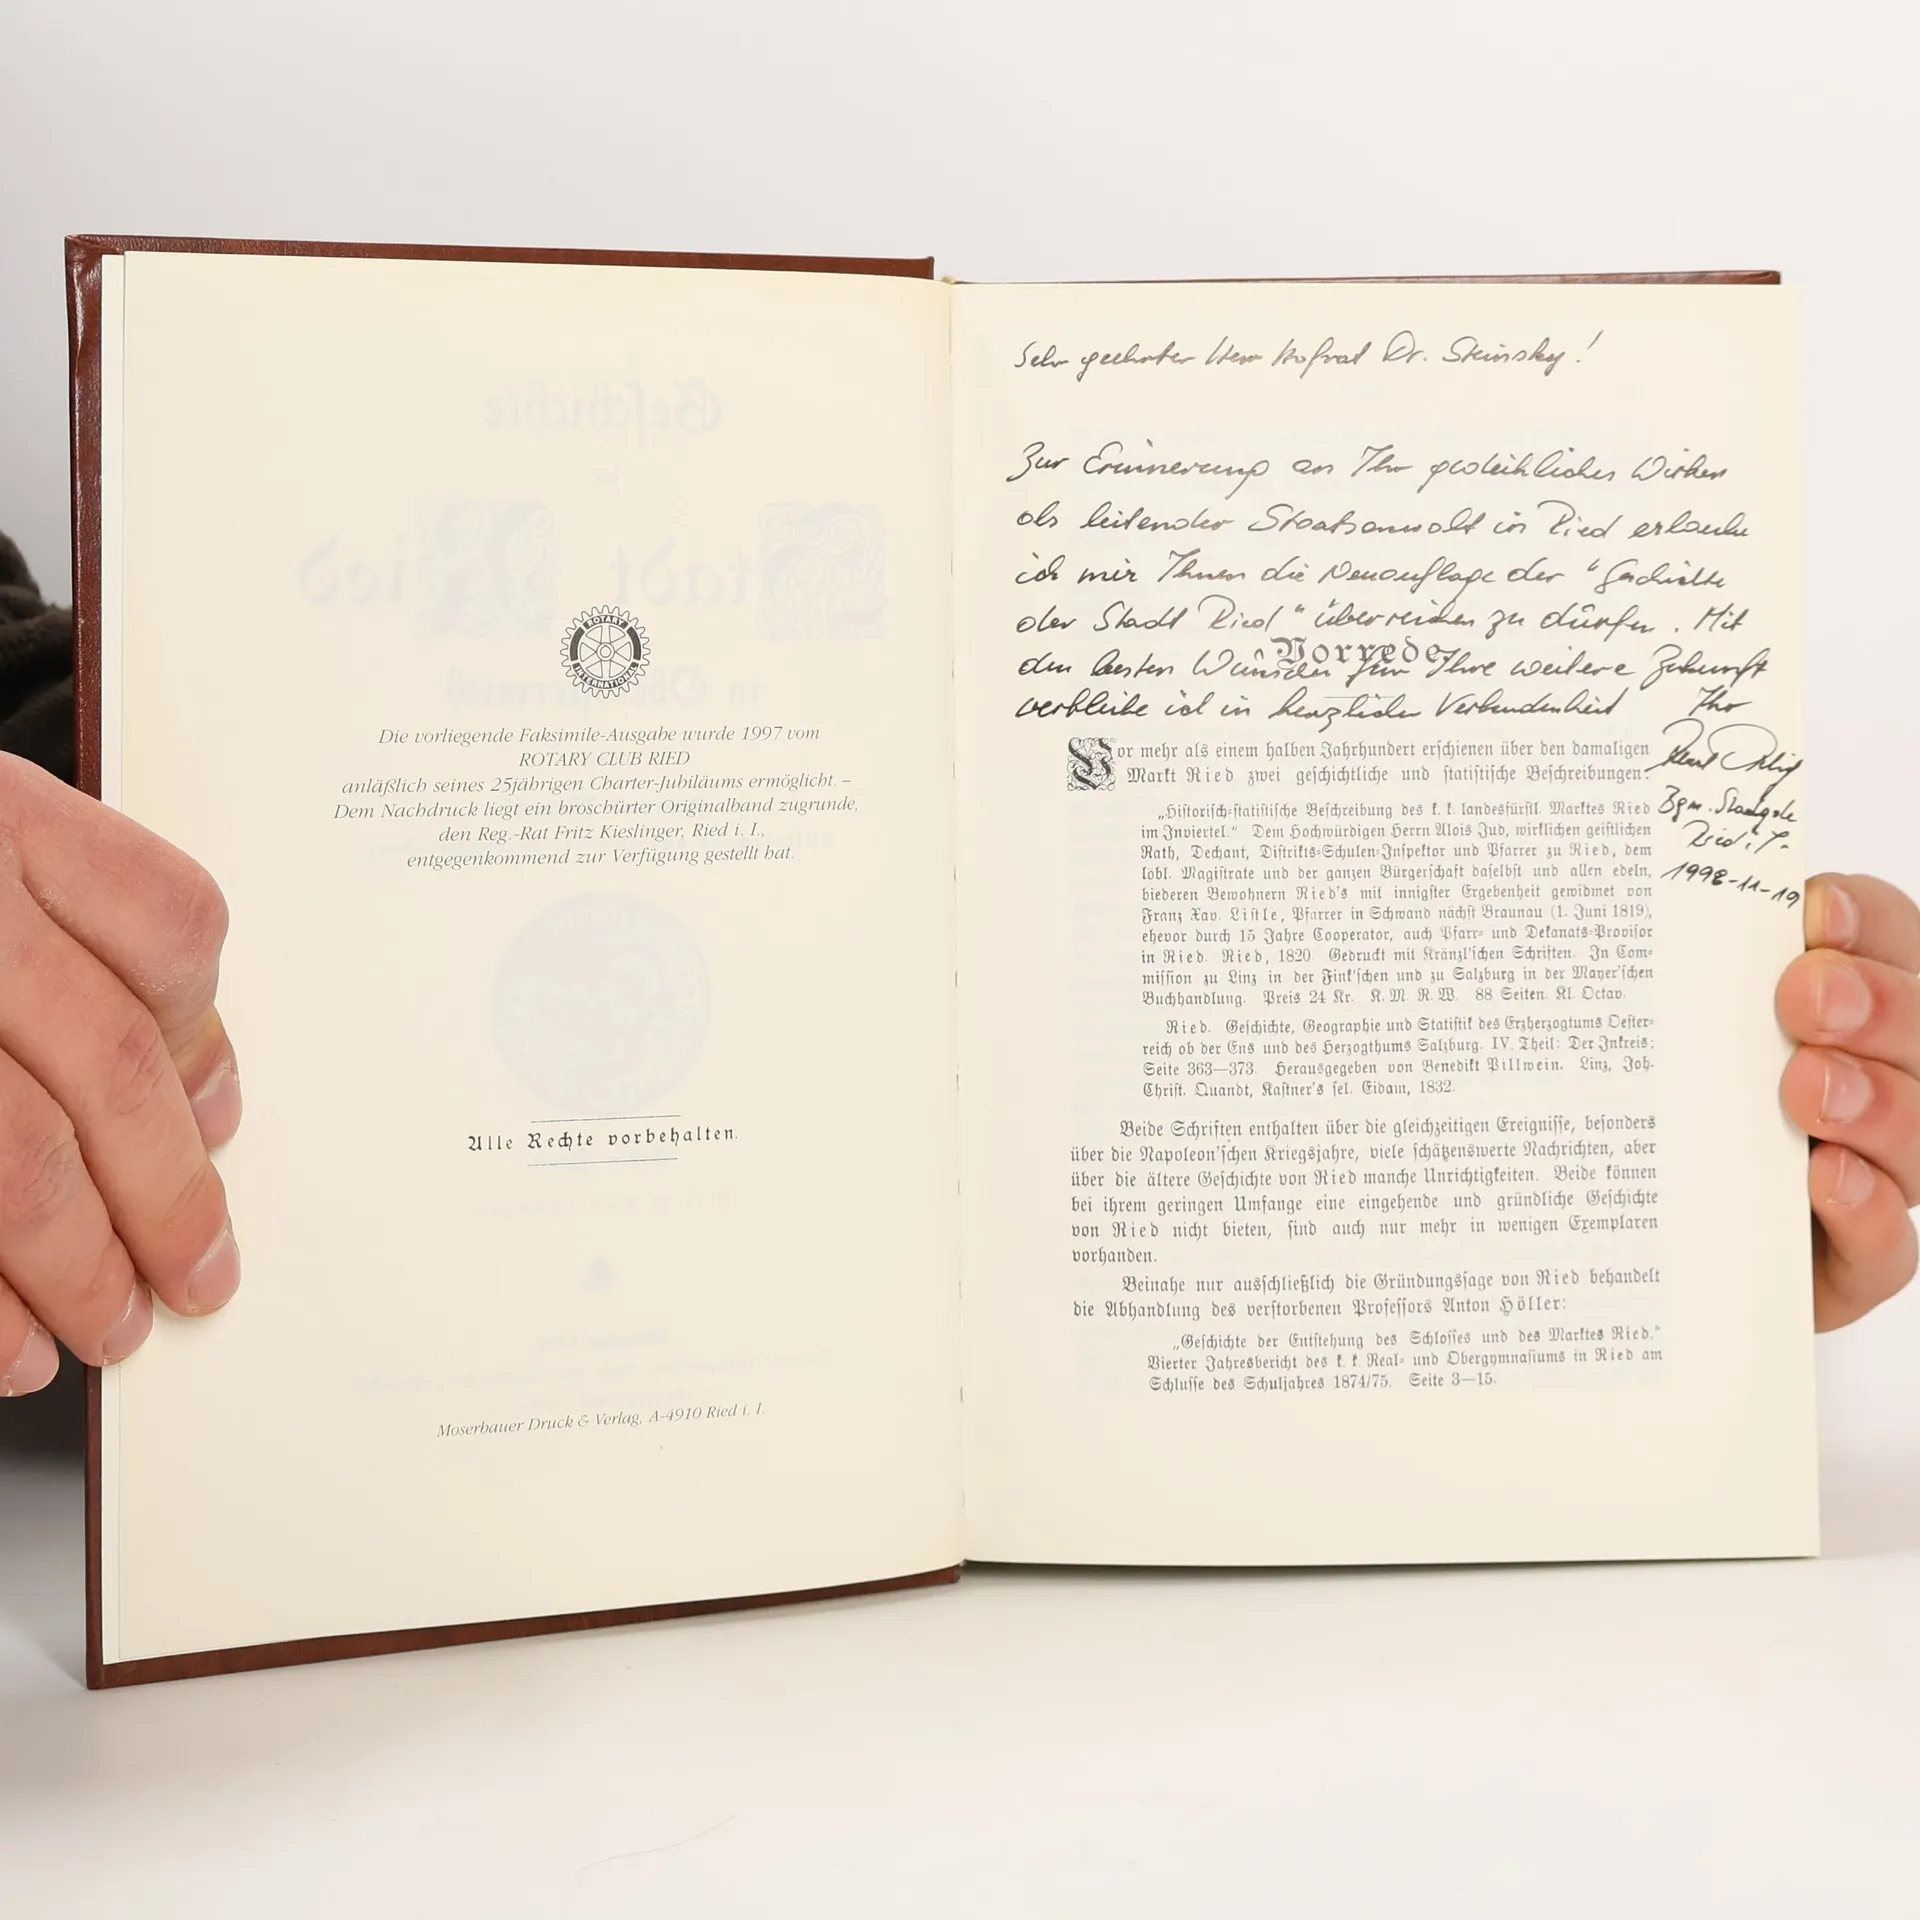 ROTARY
INTERNATIONAL
Die vorliegende Faksimile-Ausgabe wurde 1997 vom
ROTARY CLUB RIED
anläßlich seines 25jährigen Charter-Jubiläums ermöglicht. –
Dem Nachdruck liegt ein broschürter Originalband zugrunde,
den Reg.-Rat Fritz Kieslinger, Ried i. I.,
entgegenkommend zur Verfügung gestellt hat.
Alle Rechte vorbehalten.
Moserbauer Druck & Verlag, A-4910 Ried i. I.
Sehr geehrter Herr Hofrat Dr. Steinsky!
Zur Erinnerung an Ihr gedeihliches Wirken
als leitender Staatsanwalt in Ried erlaube
ich mir Ihnen die Neuauflage der "Geschichte
der Stadt Ried" überreichen zu dürfen. Mit
Vorrede.
den besten Wünschen für Ihre weitere Zukunft
verbleibe ich in herzlicher Verbundenheit Ihr
Vor mehr als einem halben Jahrhundert erschienen über den damaligen
Markt Ried zwei geschichtliche und statistische Beschreibungen:
„Historisch-statistische Beschreibung des k. k. landesfürstl. Marktes Ried
im Inviertel.“ Dem Hochwürdigen Herrn Alois Jud, wirklichen geistlichen
Rath, Dechant, Distrikts-Schulen-Inspektor und Pfarrer zu Ried, dem
löbl. Magistrate und der ganzen Bürgerschaft daselbst und allen edeln,
biederen Bewohnern Ried's mit innigster Ergebenheit gewidmet von
Franz Xav. Listle, Pfarrer in Schwand nächst Braunau (1. Juni 1819),
ehevor durch 15 Jahre Cooperator, auch Pfarr- und Dekanats-Provisor
in Ried. Ried, 1820. Gedruckt mit Kränzl'schen Schriften. In Com-
mission zu Linz in der Fink'schen und zu Salzburg in der Mayer'schen
Buchhandlung. Preis 24 Kr. K. M. R. W. 88 Seiten. Kl. Octav.
Ried. Geschichte, Geographie und Statistik des Erzherzogtums Oester-
reich ob der Ens und des Herzogthums Salzburg. IV. Theil: Der Inkreis;
Seite 363—373. Herausgegeben von Benedikt Pillwein. Linz, Joh.
Christ. Quandt, Kastner's sel. Eidam, 1832.
Beide Schriften enthalten über die gleichzeitigen Ereignisse, besonders
über die Napoleon'schen Kriegsjahre, viele schätzenswerte Nachrichten, aber
über die ältere Geschichte von Ried manche Unrichtigkeiten. Beide können
bei ihrem geringen Umfange eine eingehende und gründliche Geschichte
von Ried nicht bieten, sind auch nur mehr in wenigen Exemplaren
vorhanden.
Beinahe nur ausschließlich die Gründungssage von Ried behandelt
die Abhandlung des verstorbenen Professors Anton Höller:
„Geschichte der Entstehung des Schlosses und des Marktes Ried.“
Vierter Jahresbericht des k. k. Real- und Obergymnasiums in Ried am
Schlusse des Schuljahres 1874/75. Seite 3—15.
Bgm.
Ried i. I.
1998-11-19